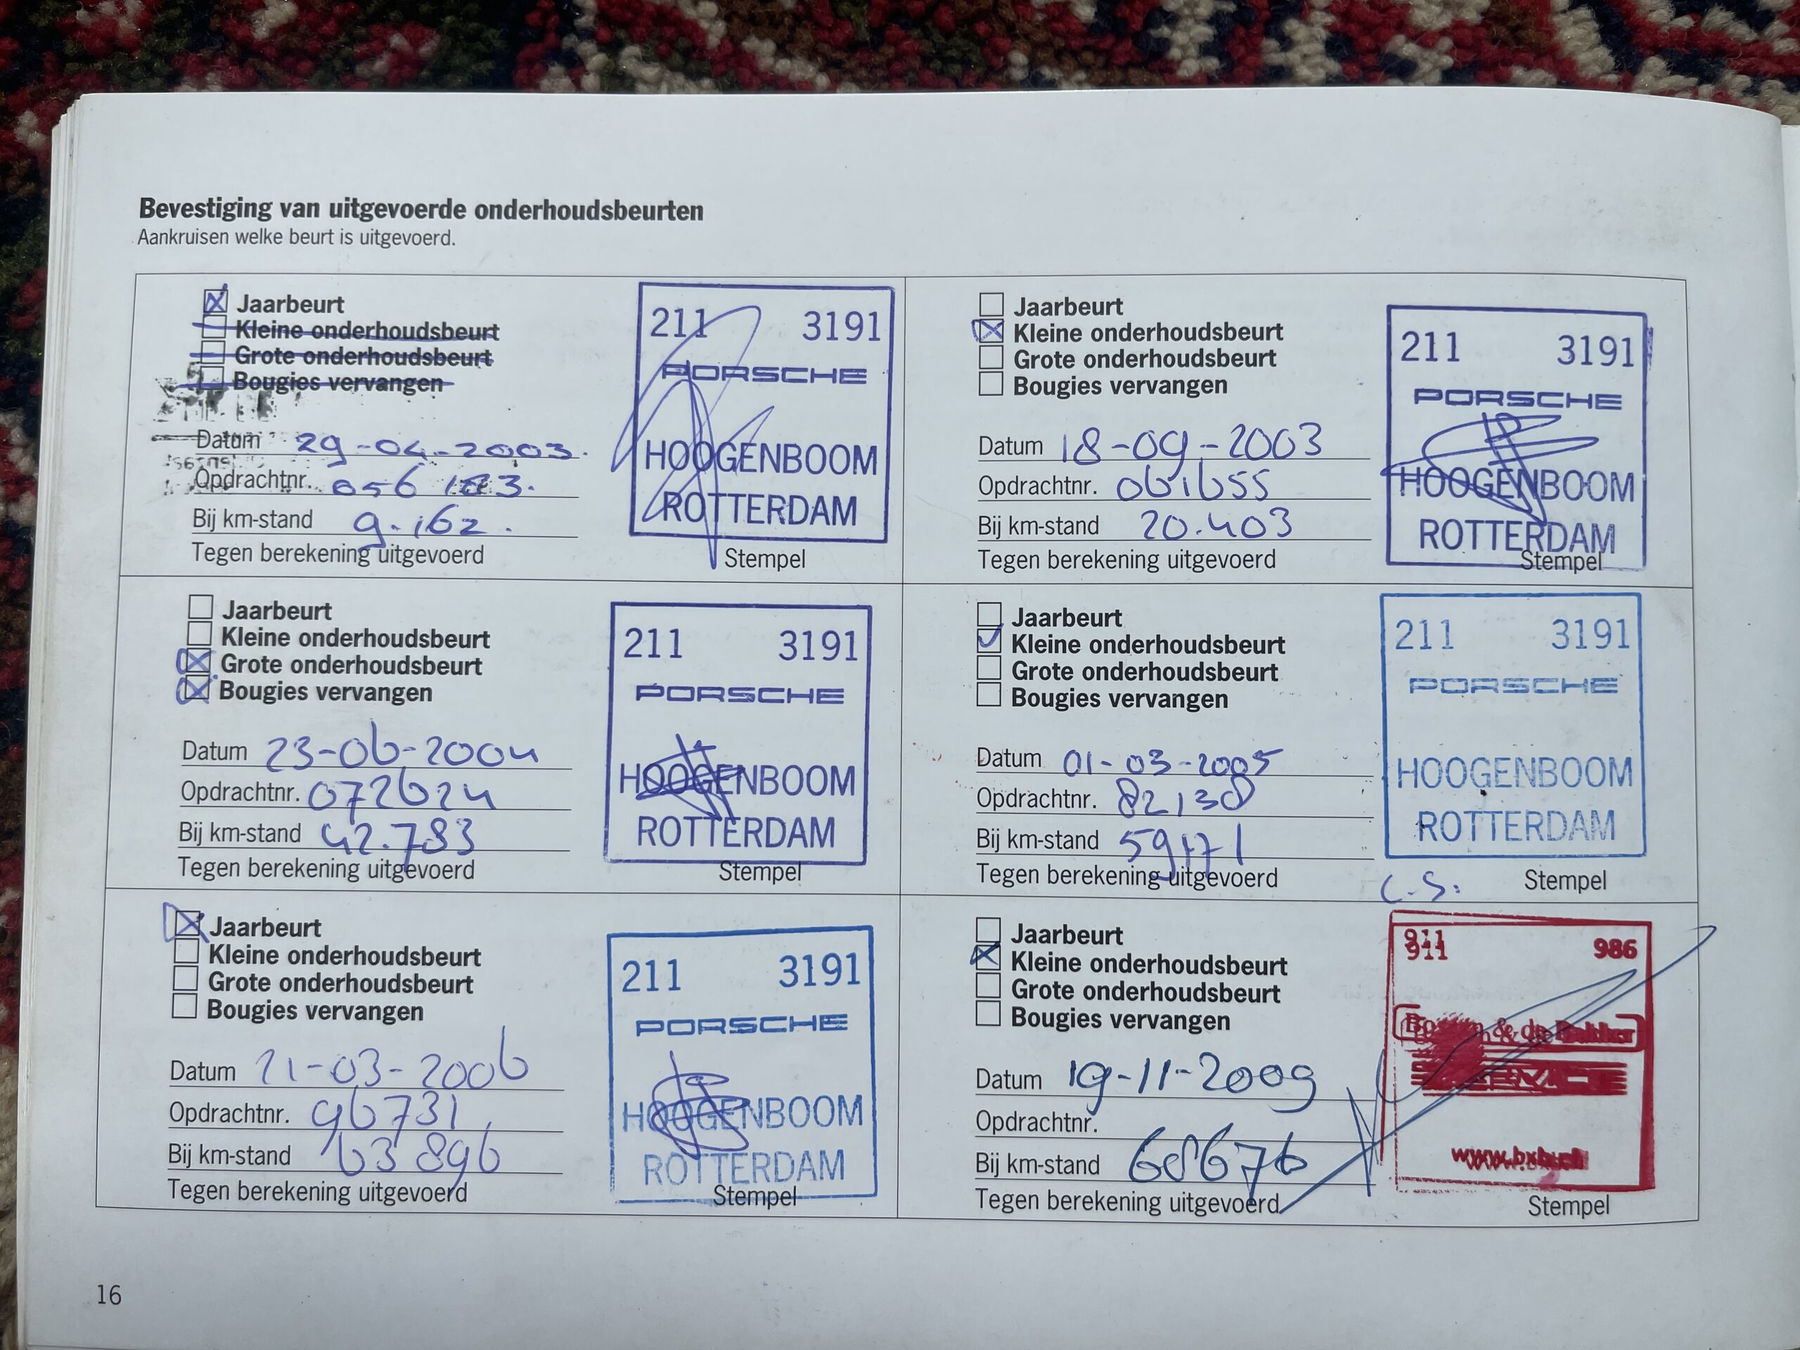 Bevestiging van uitgevoerde onderhoudsbeurten
Aankruisen welke beurt is uitgevoerd.
Jaarbeurt
Kleine onderhoudsbeurt
Grote onderhoudsbeurt
Bougies vervangen
Datum 29-04-2003.
Opdrachtnr. 056183.
Bij km-stand 9.162.
Tegen berekening uitgevoerd
211 3191
PORSCHE
HOOGENBOOM
ROTTERDAM
Stempel
Jaarbeurt
Kleine onderhoudsbeurt
Grote onderhoudsbeurt
Bougies vervangen
Datum 18-09-2003
Opdrachtnr. 061655
Bij km-stand 20.403
Tegen berekening uitgevoerd
211 3191
PORSCHE
HOOGENBOOM
ROTTERDAM
Stempel
Jaarbeurt
Kleine onderhoudsbeurt
Grote onderhoudsbeurt
Bougies vervangen
Datum 23-06-2004
Opdrachtnr. 072624
Bij km-stand 42.783
Tegen berekening uitgevoerd
211 3191
PORSCHE
HOOGENBOOM
ROTTERDAM
Stempel
Jaarbeurt
Kleine onderhoudsbeurt
Grote onderhoudsbeurt
Bougies vervangen
Datum 01-03-2005
Opdrachtnr. 82138
Bij km-stand 59171
Tegen berekening uitgevoerd
211 3191
PORSCHE
HOOGENBOOM
ROTTERDAM
C.S. Stempel
Jaarbeurt
Kleine onderhoudsbeurt
Grote onderhoudsbeurt
Bougies vervangen
Datum 21-03-2006
Opdrachtnr. 96731
Bij km-stand 63896
Tegen berekening uitgevoerd
211 3191
PORSCHE
HOOGENBOOM
ROTTERDAM
Stempel
Jaarbeurt
Kleine onderhoudsbeurt
Grote onderhoudsbeurt
Bougies vervangen
Datum 19-11-2009
Opdrachtnr.
Bij km-stand 68676
Tegen berekening uitgevoerd
911 986
& de Bakker
Stempel
16